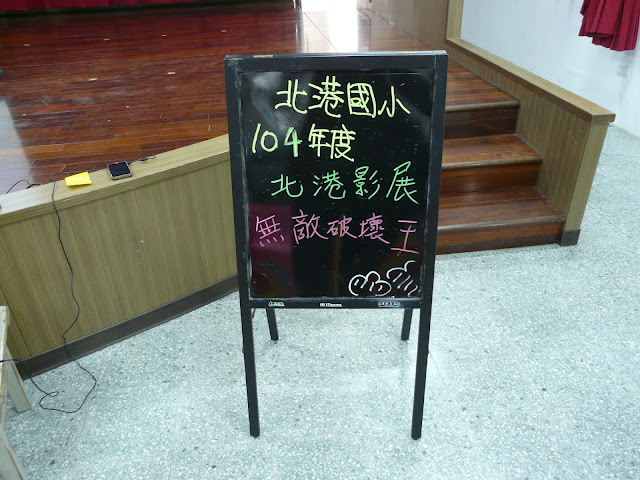 北港國小
104年度
北港影展
無敵破壞王